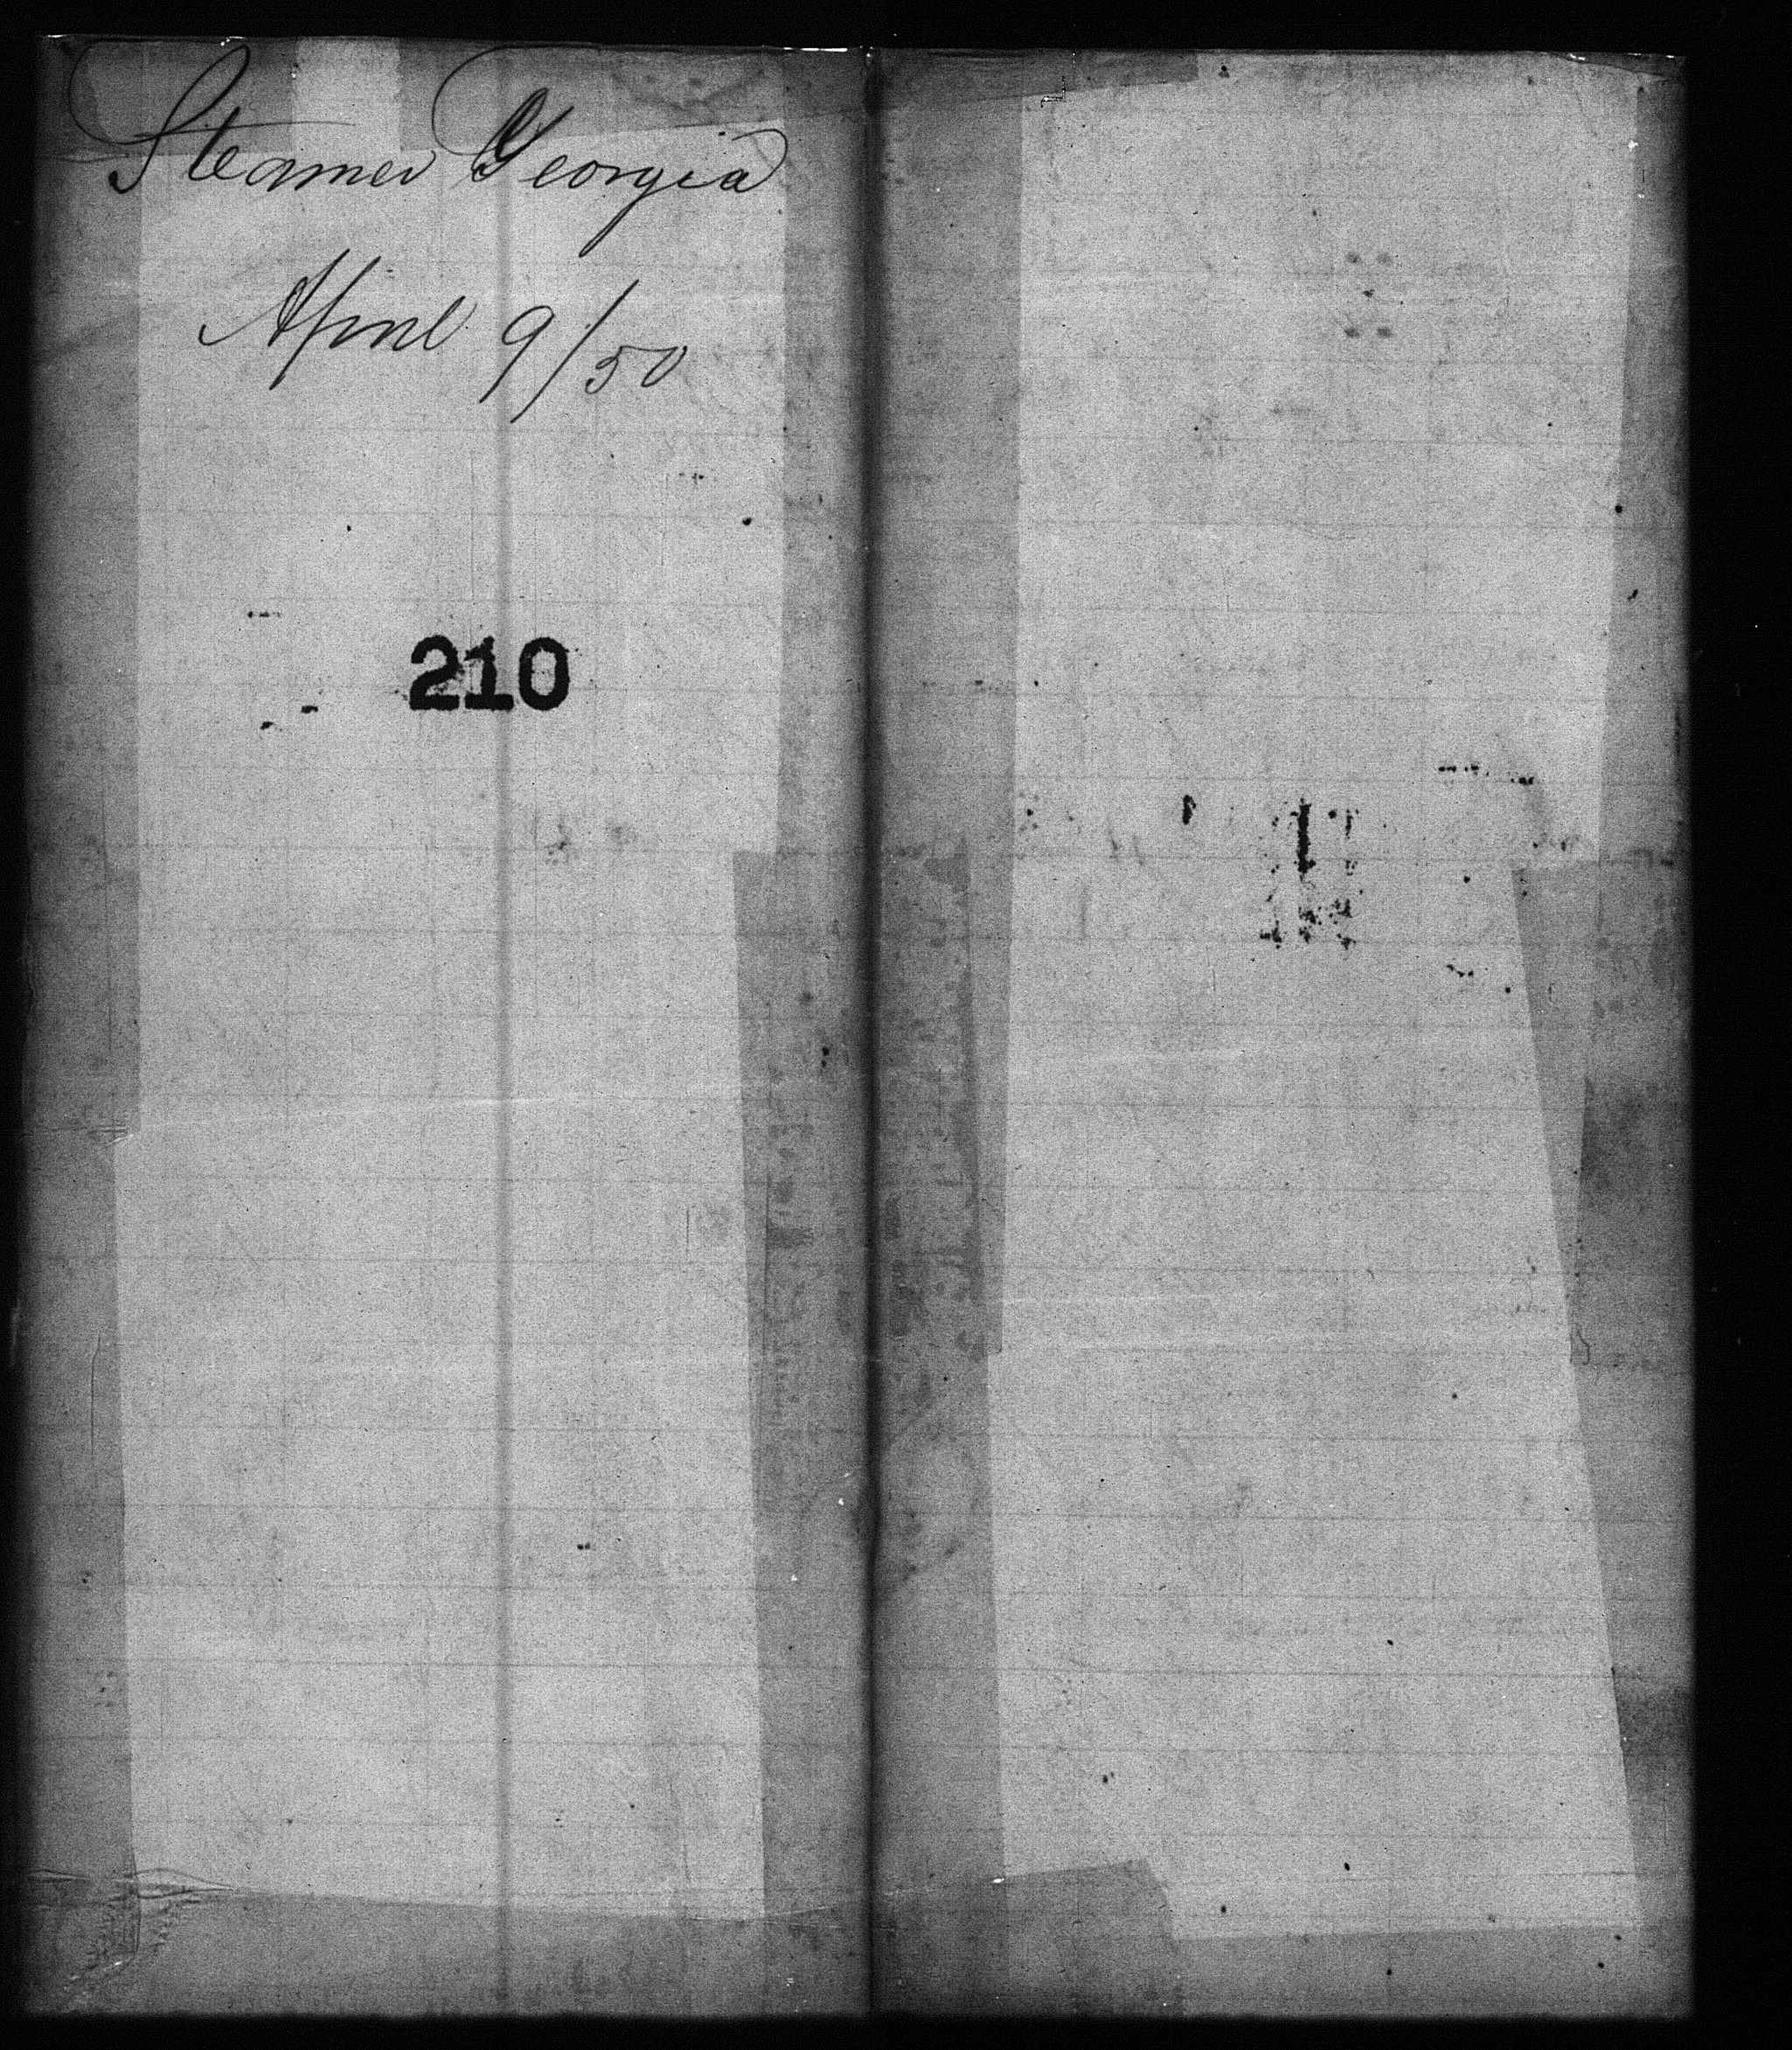 Steamer Georgia
April 9/50
210